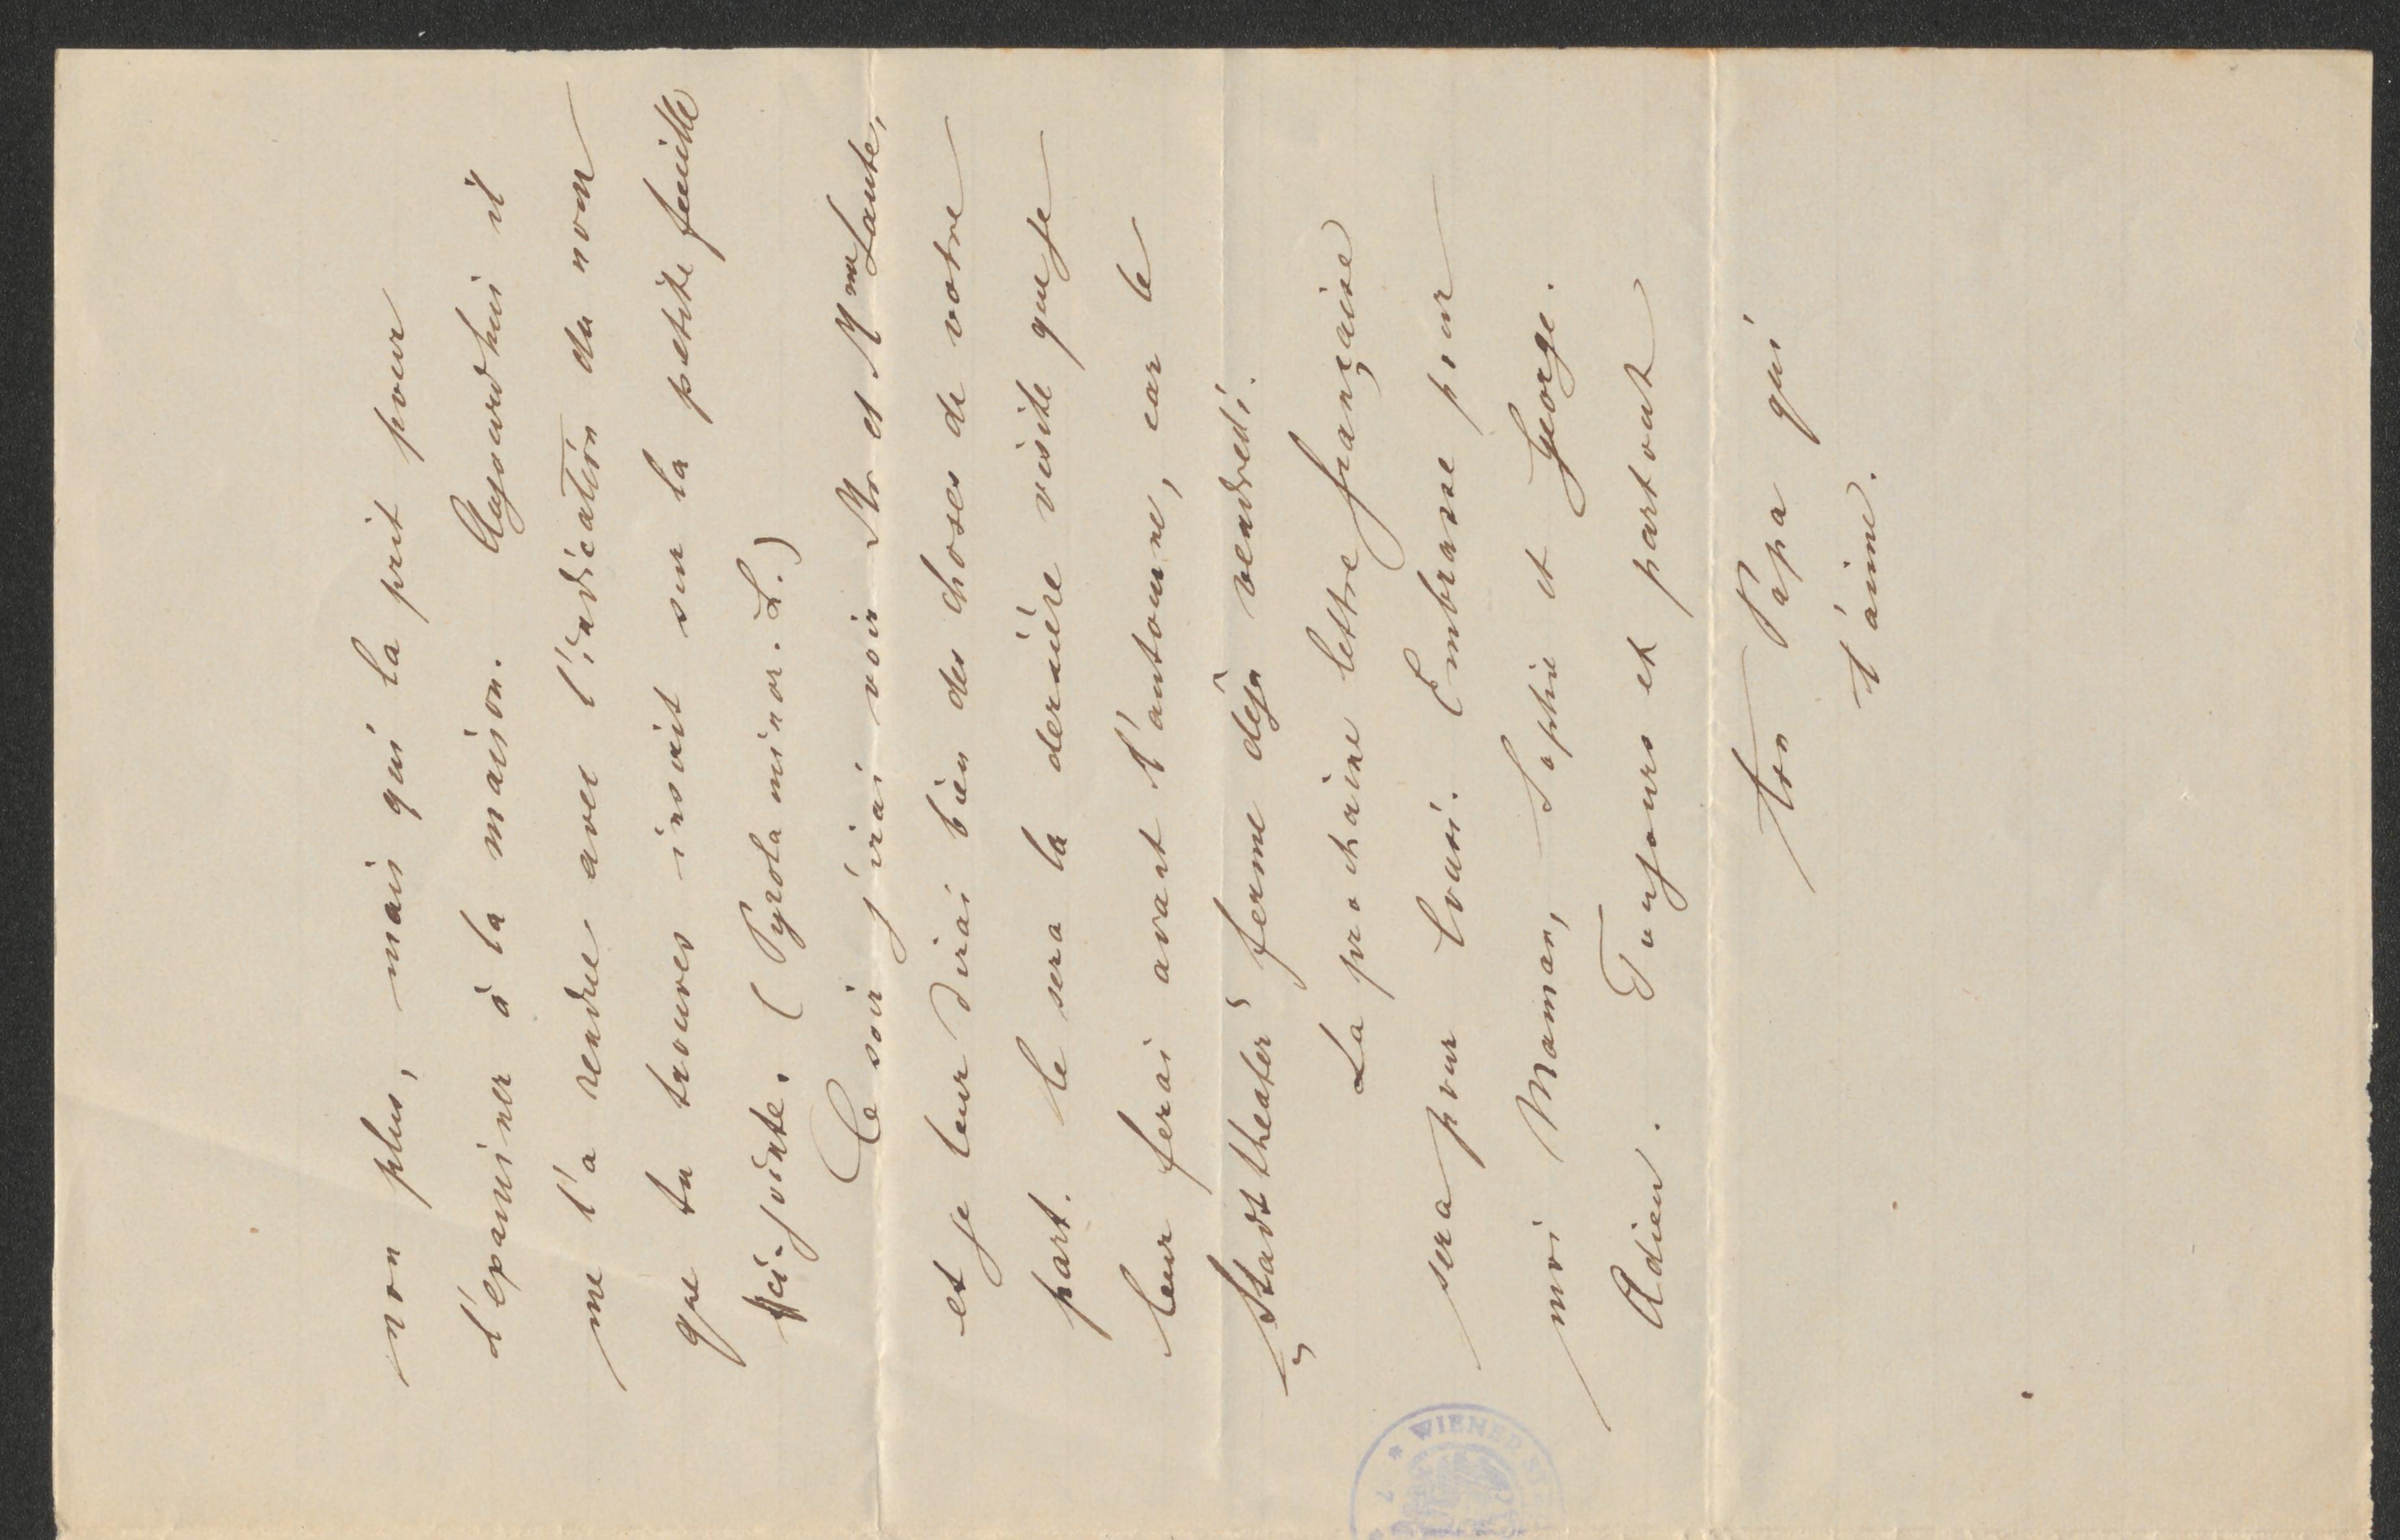 non plus, mais qui la prit pour
l'examiner à la maison. Aujourdhui il
me l'a rendue avec l'indication du nom
que tu trouves inscrit sur la petite feuille
ci-jointe. (Pyrola minor. L.)
Ce soir j'irai voir Mr et Mme Laute,
et je leur dirai bien des choses de votre
part. Ce sera la dernière visite que je
leur ferai avant l'automne, car le
„Stadttheater“ ferme déjà vendredi.
La prochaine lettre française
sera pour Lvusi. Embrasse pour
moi Maman, Sophie et George.
Adieu. Toujours et partout
ton Papa qui
t'aime.
WIENER ST